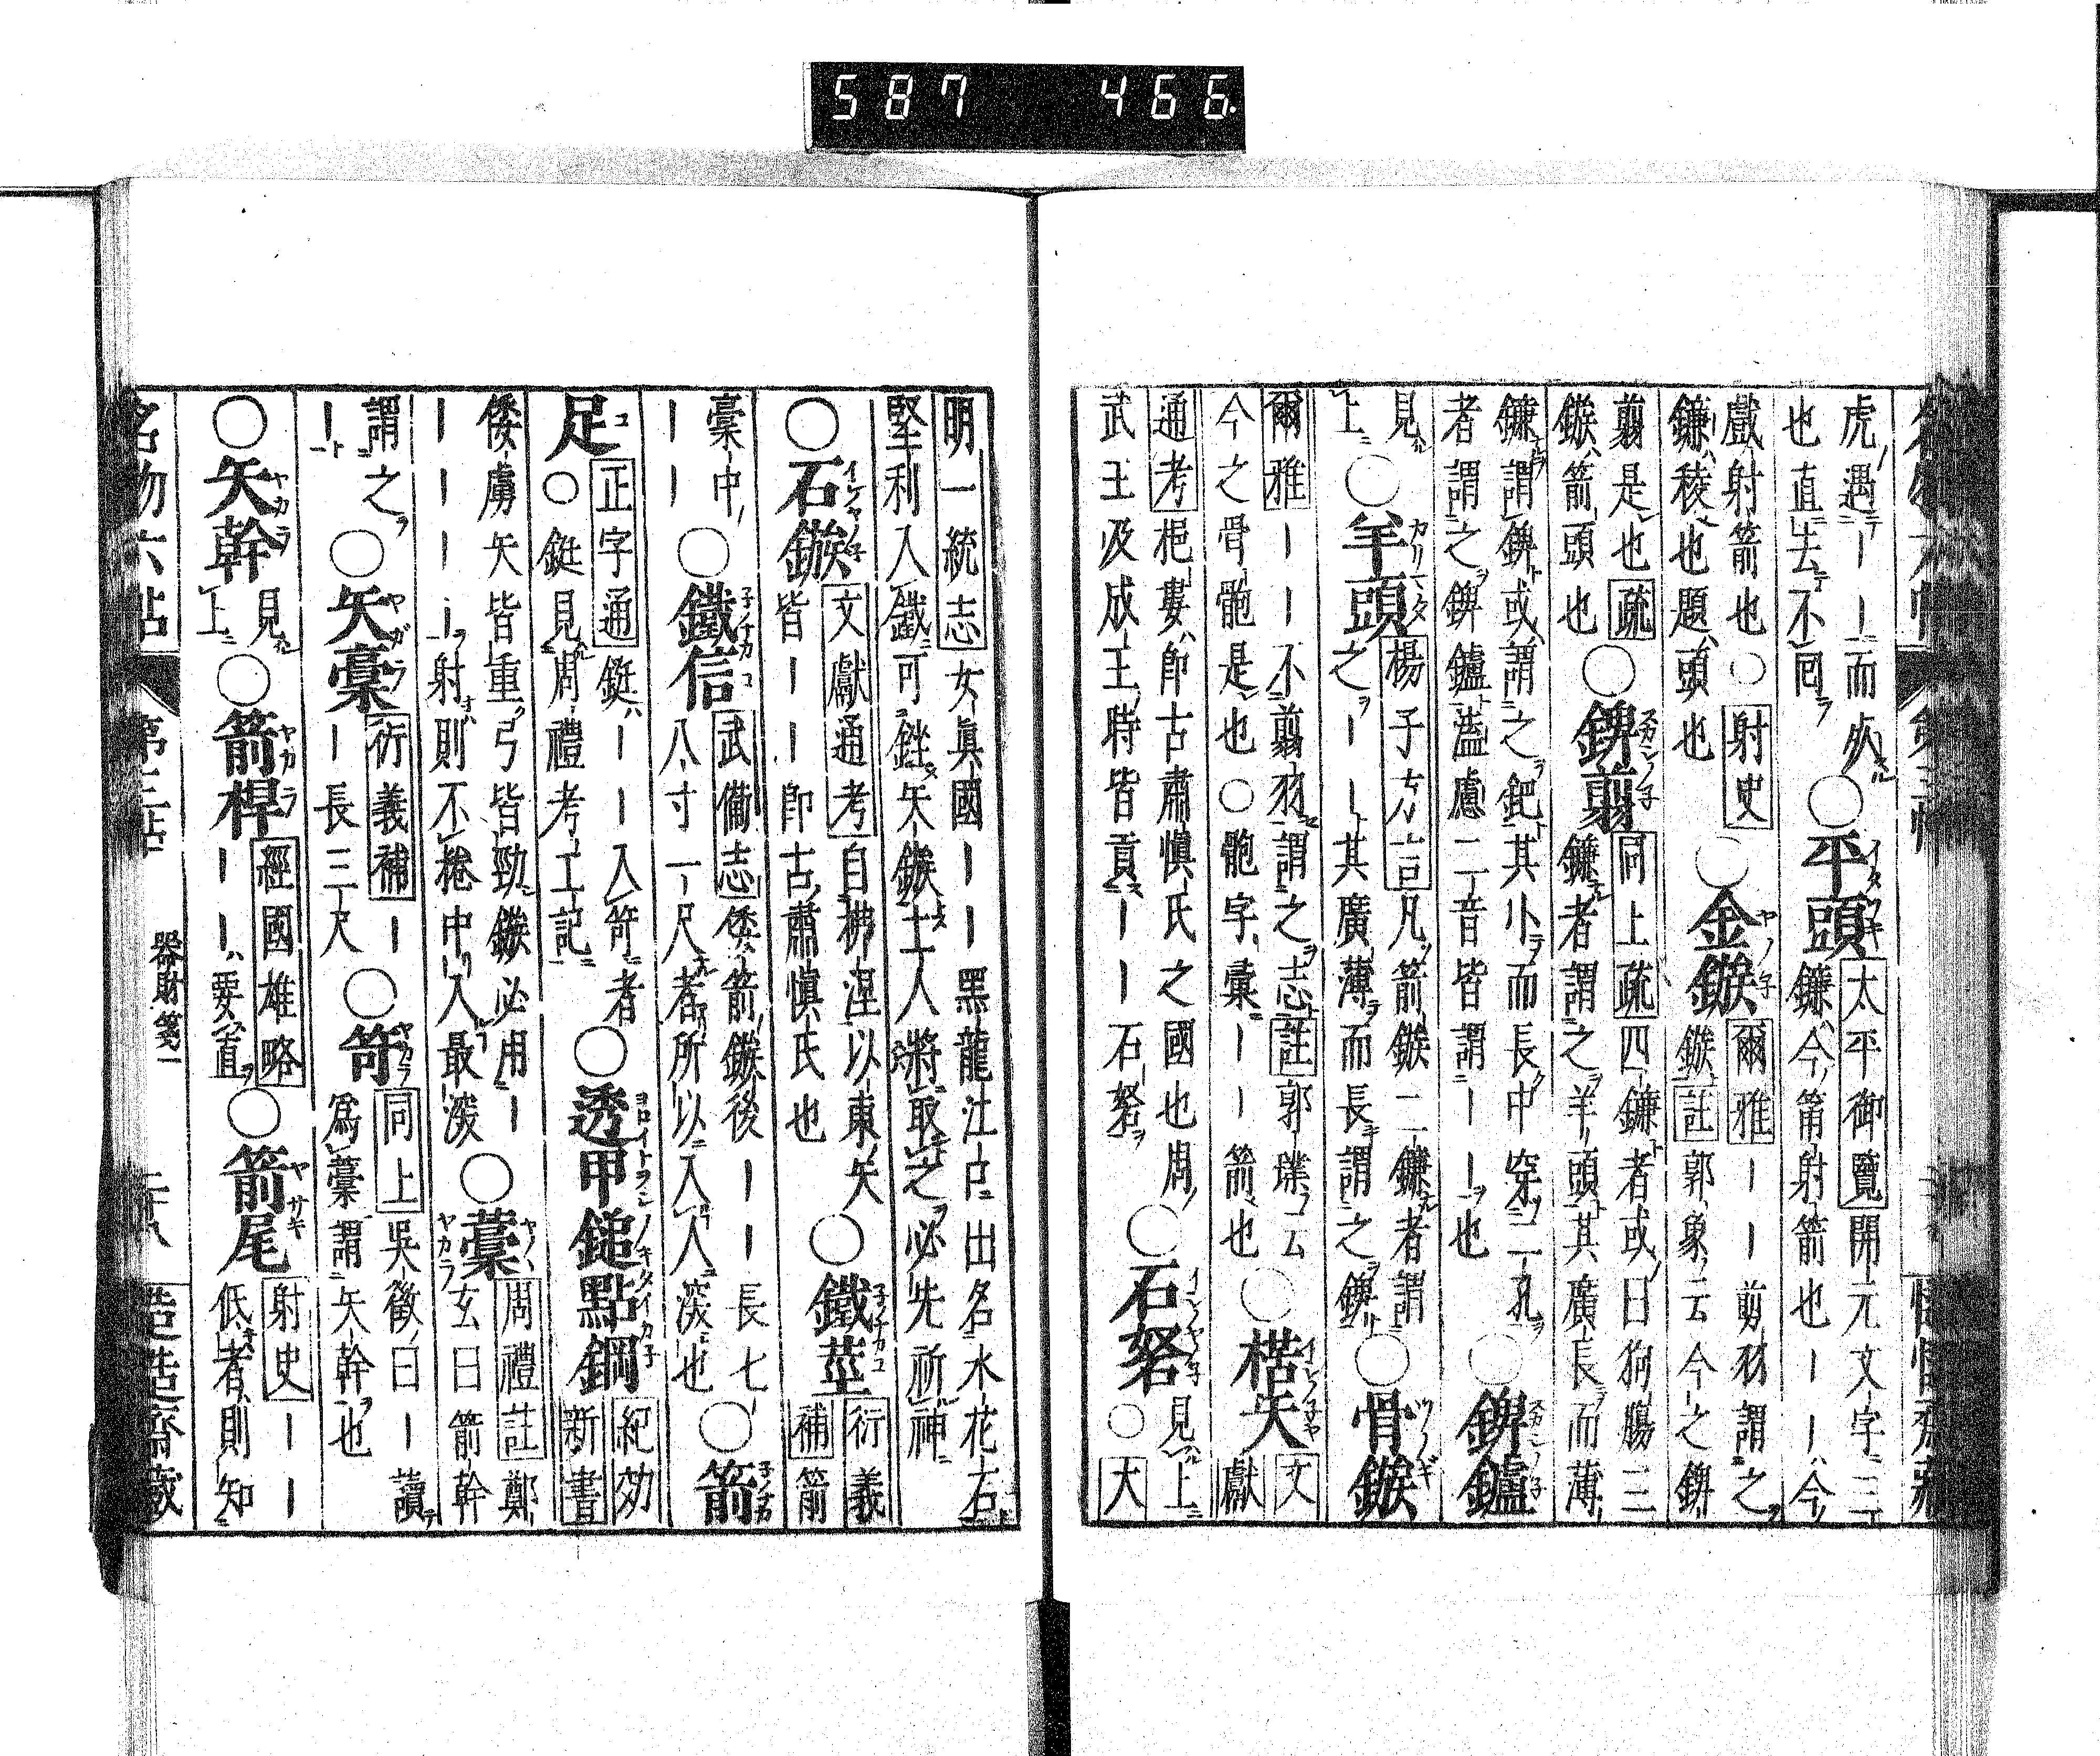 虎遇｜｜而疾
也直去不回
○平頭
太平御覽開元文字三
鐮今箭射箭也｜｜今
戲射箭也○射史
鐮稜也題頭也
○金鏃
爾雅｜｜剪羽謂之
鏃註郭象云今之錍
翦是也疏
鏃箭頭也
○錍翦
同上疏四鐮者或曰狗膓三
鐮者謂之羊頭其廣長而薄
鐮謂錍或謂之鈀其小而長中穿二孔
者謂之錍鑪溘慮二音皆謂｜｜也
○錍鑪
見
上
○羊頭
楊子方言凡箭鏃二鐮者謂
之｜｜其廣薄而長謂之錍
○骨鏃
爾雅｜｜不翦羽謂之志註郭璞云
今之骨骲是也○骲字彙｜｜箭也
○楛矢
文
獻
通考挹婁即古肅慎氏之國也周
武王及成王時皆貢｜｜石砮
○石砮
見上
○大
明一統志女眞國｜｜黑龍江口出名水花石
堅利入鐵可銼矢鏃土人將取之必先祈神
○石鏃
文獻通考自拂涅以東矢
皆｜｜即古肅愼氏也
○鐵莖
衍義
補箭
稾中
｜｜
○鐵信
武備志倭箭鏃後｜｜長七
八寸一尺者所以入人深也
○箭
足
正字通鋌｜｜入笴者
○鋌見周禮考工記
○透甲鎚點鋼
紀効
新書
倭虜矢皆重弓皆勁鏃必用｜
｜｜｜｜射則不捲中人最深
○藁
周禮註鄭
玄曰箭幹
謂之
｜
○矢稾
衍義補｜
｜長三尺
○笴
同上吳徵曰｜讀
爲藁謂矢幹也
○矢幹
見
上
○箭桿
經國雄略
｜｜要直
○箭尾
射史｜｜
低者則知
名物六帖 第三帖 器財箋二